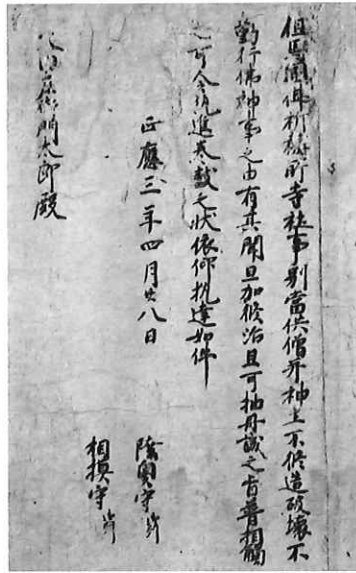 但馬國御祈祷所寺社事別當供僧并神主不修造破壊不
勤行佛神事之由有其聞且加修治且可抽丹誠之旨普相觸
之可令執進巻数之状依仰執達如件
正應三年四月廿八日
陸奥守
相摸守
田左衛門太郎殿